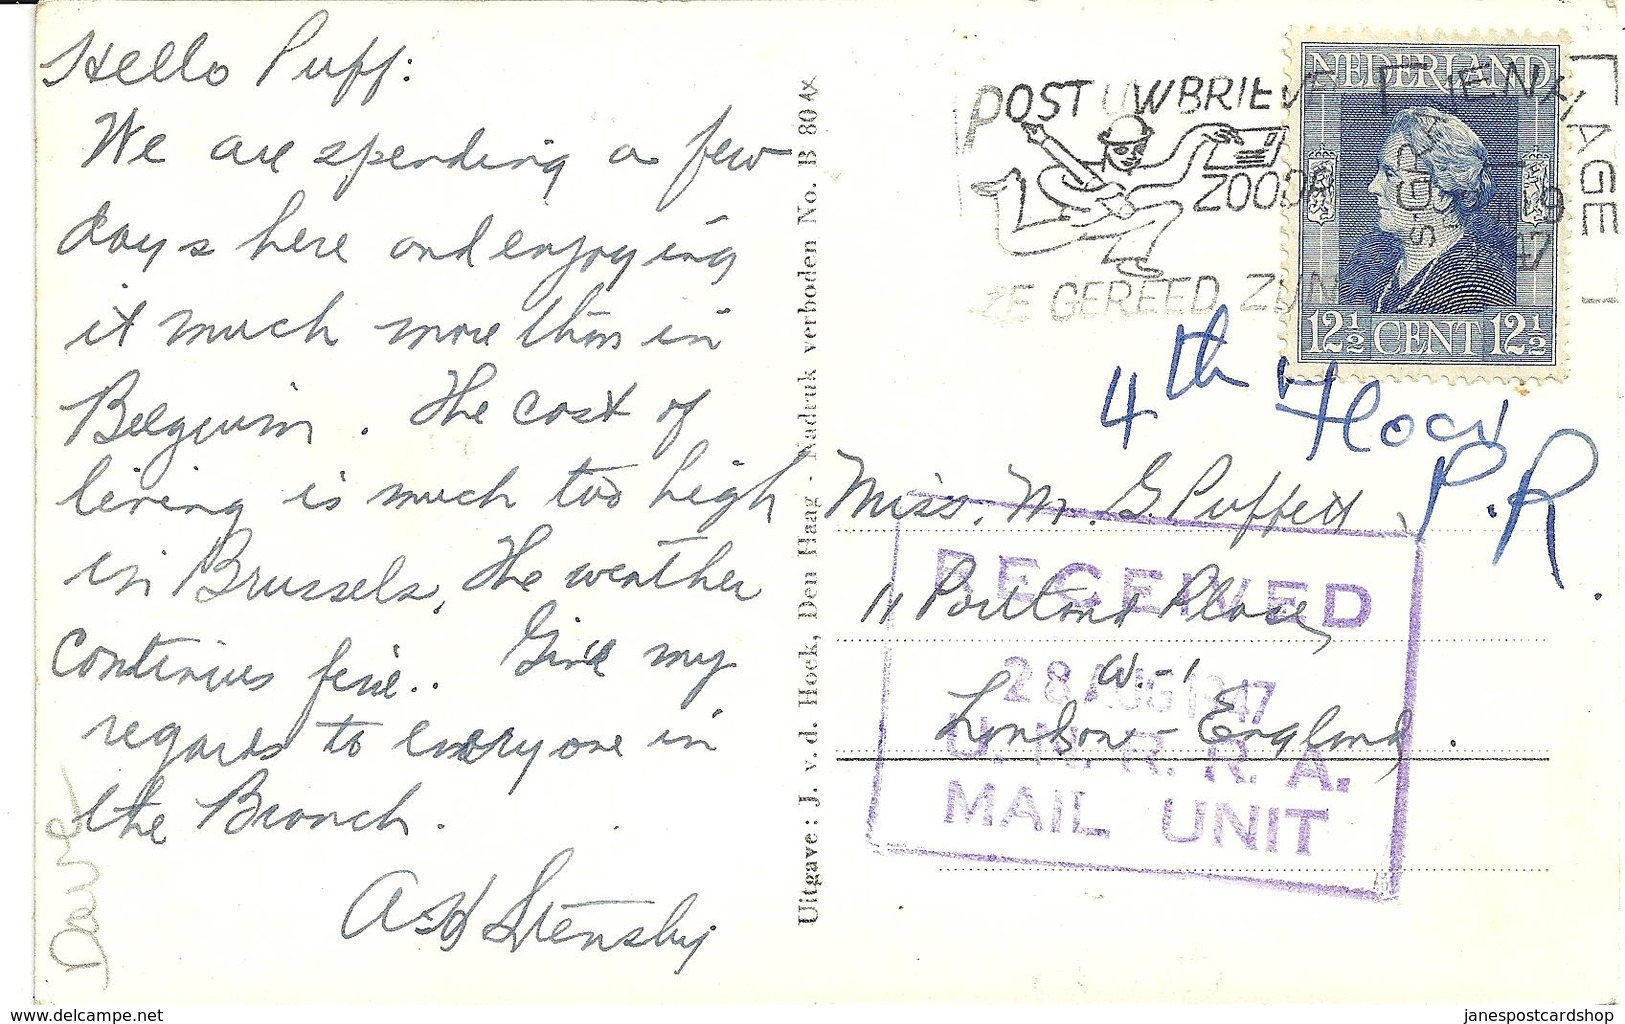 Hello Puff:
We are spending a few
days here and enjoying
it much more than in
Belgium. The cost of
living is much too high
in Brussels. The weather
continues fine.. Give my
regards to everyone in
the Branch.
A H Stensby
Dave
Uitgave: J. v. d. Hoek, Den Haag - Nadruk verboden No. B 80 Ax
POST UW BRIEVEN
ZOODRA
ZE GEREED ZIJN
'S-GRAVENHAGE
9
47
NEDERLAND
12½ CENT 12½
4th Floor
P.R.
Miss. M. G. Puffett
11 Portland Place,
W.-1
London - England.
RECEIVED
28 AUG 1947
U. N. R. R. A.
MAIL UNIT
www.delcampe.net
janespostcardshop